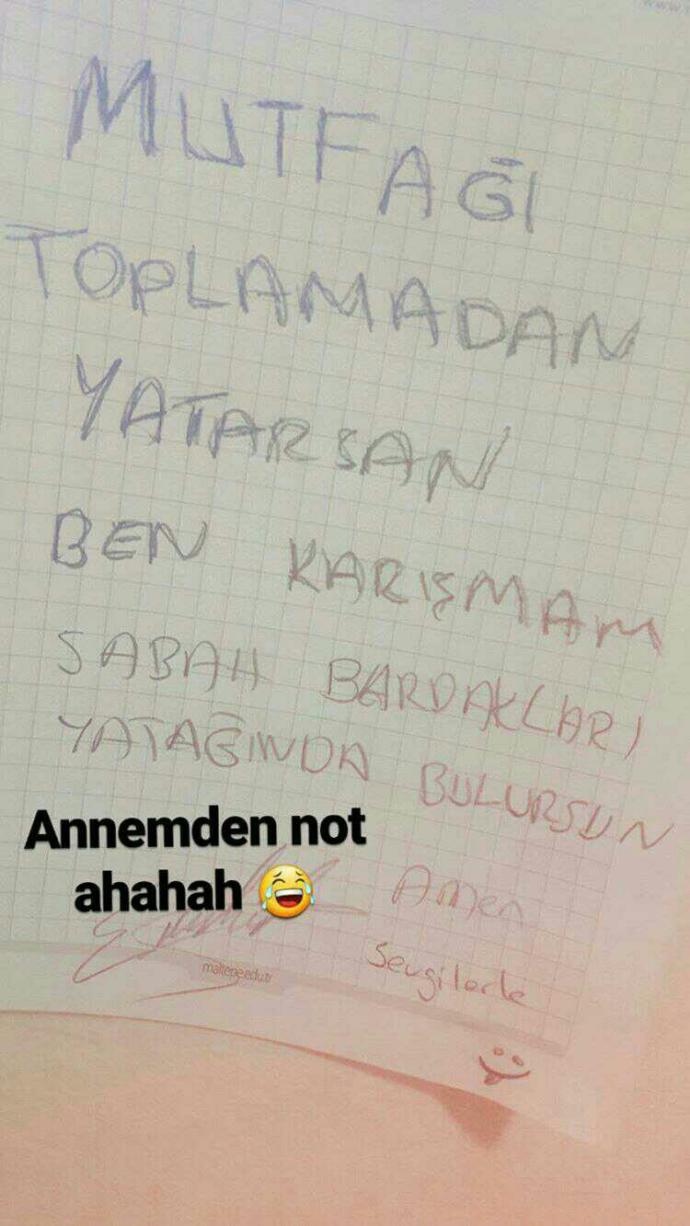 MUTFAĞI
TOPLAMADAN
YATARSAN
BEN KARIŞMAM
SABAH BARDAKLARI
YATAĞINDA BULURSUN
Annemden not
ahahah 😂
Amen
Sevgilerle
maltepe.edu.tr